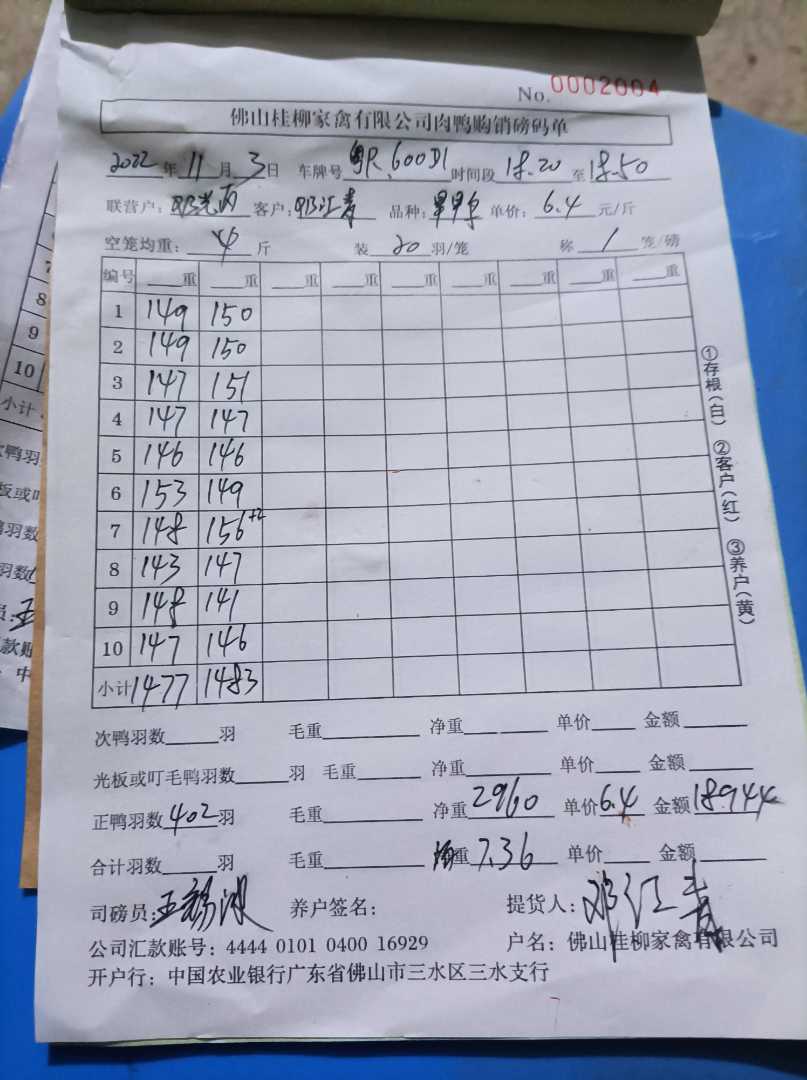 No. 0002004
佛山桂柳家禽有限公司肉鸭购销磅码单
2022年11月3日 车牌号粤R.600D1时间段18.20至18.50
联营户:邓 客户:邓江青 品种: 单价:6.4元/斤
空笼均重:4斤 装20羽/笼 称1笼/磅
编号 重 重 重 重 重 重 重 重 重
1 149 150
2 149 150
3 147 151
4 147 147
5 146 146
6 153 149
7 148 156+2
8 143 147
9 148 141
10 147 146
小计 1477 1483
①存根(白) ②客户(红) ③养户(黄)
次鸭羽数 羽 毛重 净重 单价 金额
光板或叮毛鸭羽数 羽 毛重 净重 单价 金额
正鸭羽数402羽 毛重 净重2960 单价6.4 金额18944
合计羽数 羽 毛重 均重7.36 单价 金额
司磅员:王锡波 养户签名: 提货人:邓江青
公司汇款账号:4444 0101 0400 16929 户名:佛山桂柳家禽有限公司
开户行:中国农业银行广东省佛山市三水区三水支行
7
8
9
10
小计